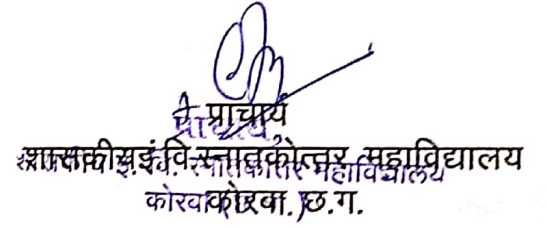 प्राचार्य
शासकीय इं.वि. स्नातकोत्तर महाविद्यालय
कोरबा छ.ग.